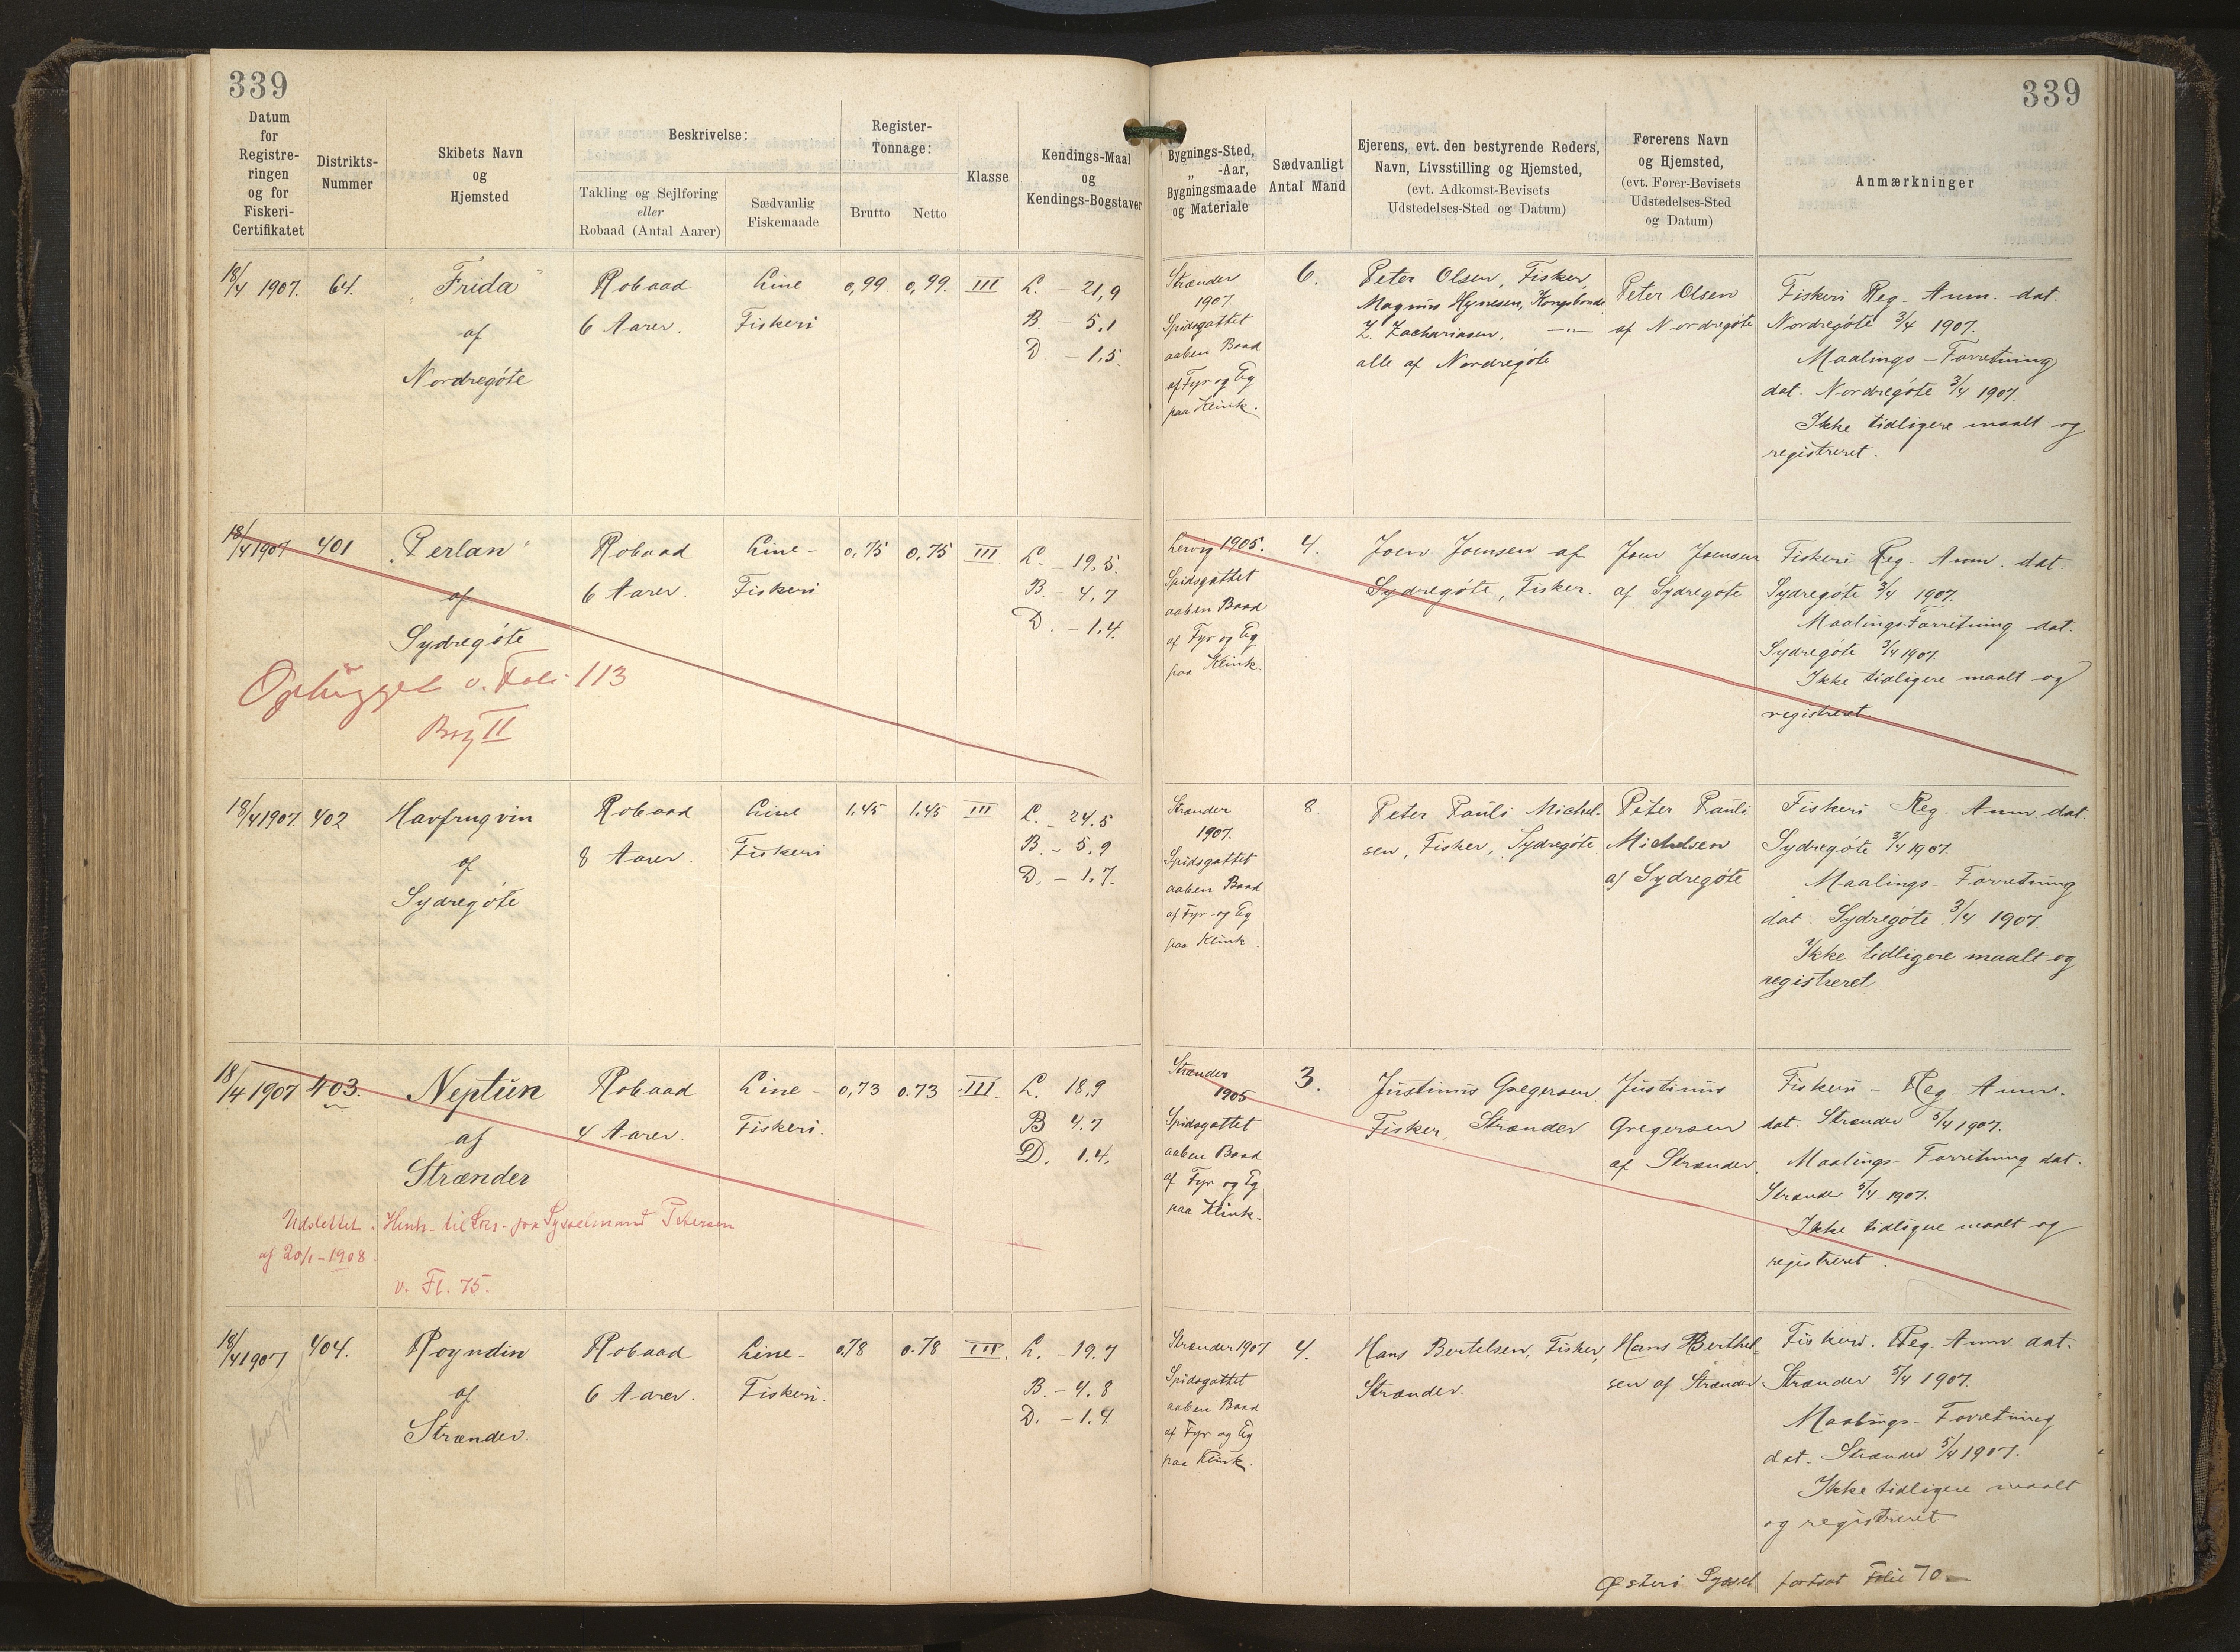 339
339
Datum
for
Registre-
ringen
og for
Fiskeri-
Certifikatet
Distrikts-
Nummer
Skibets Navn
og
Hjemsted
Beskrivelse:
Takling og Sejlføring
eller
Robaad (Antal Aarer)
Sædvanlig
Fiskemaade
Register-
Tonnage:
Brutto
Netto
Klasse
Kendings-Maal
og
Kendings-Bogstaver
Bygnings-Sted,
„ -Aar,
Bygningsmaade
og Materiale
Sædvanligt
Antal Mand
Ejerens, evt. den bestyrende Reders,
Navn, Livsstilling og Hjemsted,
(evt. Adkomst-Bevisets
Udstedelses-Sted og Datum)
Førerens Navn
og Hjemsted,
(evt. Fører-Bevisets
Udstedelses-Sted
og Datum)
Anmærkninger
18/4 1907.
64.
„Frida"
af
Nordregöte
Robaad
6 Aarer.
Line
Fiskeri
0,99
0,99.
III
L. - 21,9
B. - 5,1
D. - 1,5.
Strænder
1907.
Spidsgattet
aaben Baad
af Fyr og Eg
paa Klink.
6.
Peter Olsen, Fisker,
Magnus Hynesen, Kongsbonde
Z. Zachariasen, —"—
alle af Nordregöte
Peter Olsen
af Nordregöte
Fiskeri Reg. Anm. dat.
Nordregöte 3/4 1907.
Maalings-Forretning
dat. Nordregöte 3/4 1907.
Ikke tidligere maalt og
registreret.
18/4 1907
401
„Perlan"
af
Sydregöte
Ophugget v. Foli 113
Bog II
Robaad
6 Aarer.
Line-
Fiskeri
0,75
0,75
III
L. - 19,5.
B. - 4,7
D. - 1,4.
Lervig 1905.
Spidsgattet
aaben Baad
af Fyr og Eg
paa Klink.
4.
Joen Joensen af
Sydregöte, Fisker.
Joen Joensen
af Sydregöte
Fiskeri Reg. Anm. dat.
Sydregöte 3/4 1907.
Maalings-Forretning dat.
Sydregöte 3/4 1907.
Ikke tidligere maalt og
registreret.
18/4 1907.
402
Havfrugvin
af
Sydregöte
Robaad
8 Aarer.
Line
Fiskeri
1,45
1,45
III
L. - 24.5
B. - 5,9
D. - 1,7.
Strænder
1907.
Spidsgattet
aaben Baad
af Fyr og Eg
paa Klink.
8.
Peter Pauli Michel-
sen, Fisker, Sydregöte.
Peter Pauli
Michelsen
af Sydregöte
Fiskeri Reg. Anm. dat.
Sydregöte 3/4 1907.
Maalings-Forretning
dat. Sydregöte 3/4 1907.
Ikke tidligere maalt og
registreret.
18/4 1907
403.
Neptun
af
Strænder
Udslettet. Henh. til Skr. fra Sysselmand Petersen
af 20/1-1908
v. Fl. 75.
Robaad
4 Aarer.
Line-
Fiskeri.
0,73
0.73
III.
L. 18,9
B 4.7
D. 1.4.
Strænder
1905
Spidsgattet
aaben Baad
af Fyr og Eg
paa Klink.
3.
Justinus Gregersen
Fisker, Strænder
Justinus
Gregersen
af Strænder.
Fiskeri - Reg. Anm.
dat. Strænder 5/4 1907.
Maalings-Forretning dat.
Strænder 5/4-1907.
Ikke tidligere maalt og
registreret.
18/4 1907
404.
Royndin
af
Strænder.
Robaad
6 Aarer.
Line-
Fiskeri.
0,78
0.78
III.
L. - 19,7
B. - 4,8
D. - 1.4
Strænder 1907
Spidsgattet
aaben Baad
af Fyr og Eg
paa Klink.
4.
Hans Bertelsen, Fisker,
Strænder.
Hans Berthel-
sen af Strænder
Fiskeri. Reg. Anm. dat.
Strænder 5/4 1907.
Maalings-Forretning
dat. Strænder 5/4 1907.
Ikke tidligere maalt
og registreret
Østerø Syssel fortsat Folie 70